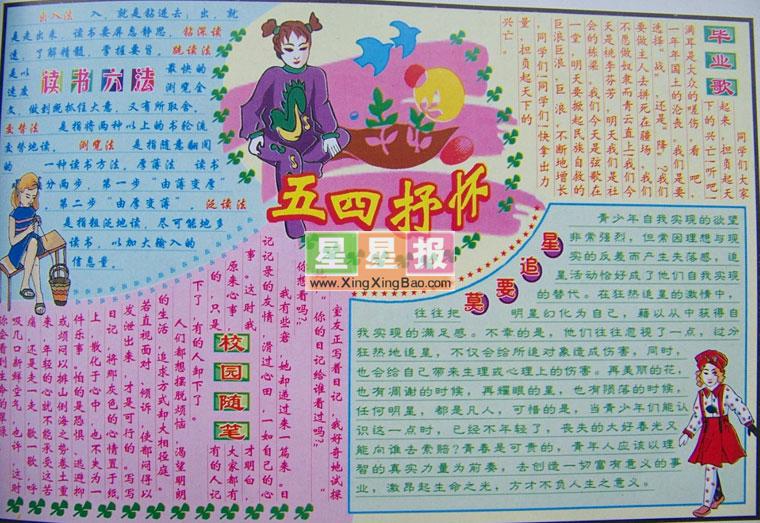 五四抒怀
读书六法
出入法 入，就是钻进去；出，就
是走出来，读书要屏息静思，钻深读
透，了解精髓，掌握要旨。跳读法
是以 最快的
速度 浏览全
文，做到既抓住大意，又有所取舍。
交替法 是指将两种以上的书轮流
交替地读。浏览法 是指随意翻阅
的一种读书方法。厚薄法 读书
分两步，第一步“由薄变厚”
第二步“由厚变薄”。泛读法
是指粗泛地读，尽可能地多
读书，以加大输入的
信息量。
毕业歌
同学们大家
起来，担负起天
下的兴亡！听吧！
满耳是大众的嗟伤，看吧，
一年年国土的沦丧，我们是要
选择“战”还是“降”？我们
要做主人去拼死在疆场，我们
不愿做奴隶而青云直上！我们今
天是桃李芬芳，明天我们是社
会的栋梁。我们今天是弦歌在
一堂，明天要掀起民族自救的
巨浪！巨浪，巨浪，不断地增长
！同学们！同学们！快拿出力
量，担负起天下的
兴亡！
星星报
www.XingXingBao.com
莫要追星
青少年自我实现的欲望
非常强烈，但常因理想与现
实的反差而产生失落感，追
星活动恰好成了他们自我实现
的替代。在狂热追星的激情中，
往往把 明星幻化为自己，藉以从中获得自
我实现的满足感。不幸的是，他们往往忽视了一点，过分
狂热地追星，不仅会给所追对象造成伤害，同时，
也会给自己带来生理或心理上的伤害。再美丽的花，
也有凋谢的时候，再耀眼的星，也有陨落的时候，
任何明星，都是凡人，可惜的是，当青少年们能认
识这一点时，已经不年轻了，丧失的大好春光又
能向谁去索赔？青春是可贵的，青年人应该以理
智的真实力量为前奏，去创造一切富有意义的事
业，激昂起生命之光，方才不负人生之意义。
校园随笔
室友正写着日记，我好奇地试探
：“你的日记给谁看过吗？”
“你想看吗？”
我有些窘，她却递过来一篇来。日
记记录的友情，滑过心田，一如自己的心
事。这时我 才明白，
原来心事 大家都有
的，只是 有的人记
下了，有的人却下了。
人们都想摆脱烦恼，渴望明朗
的生活，追求方式却大相径庭。
若直视面对，倾诉，使郁闷得以
发泄出来，才是可行的。写写
日记，将那灰色的心情置于纸
上，散化于心中，也不失为一
件乐事。怕的是恐惧、逃避抑
或烦闷以排山倒海之势卷土重
来，年轻的心就不能承受这苦
痛，还是走一走，歌一歌，呼
吸几口新鲜空气，也许，这时